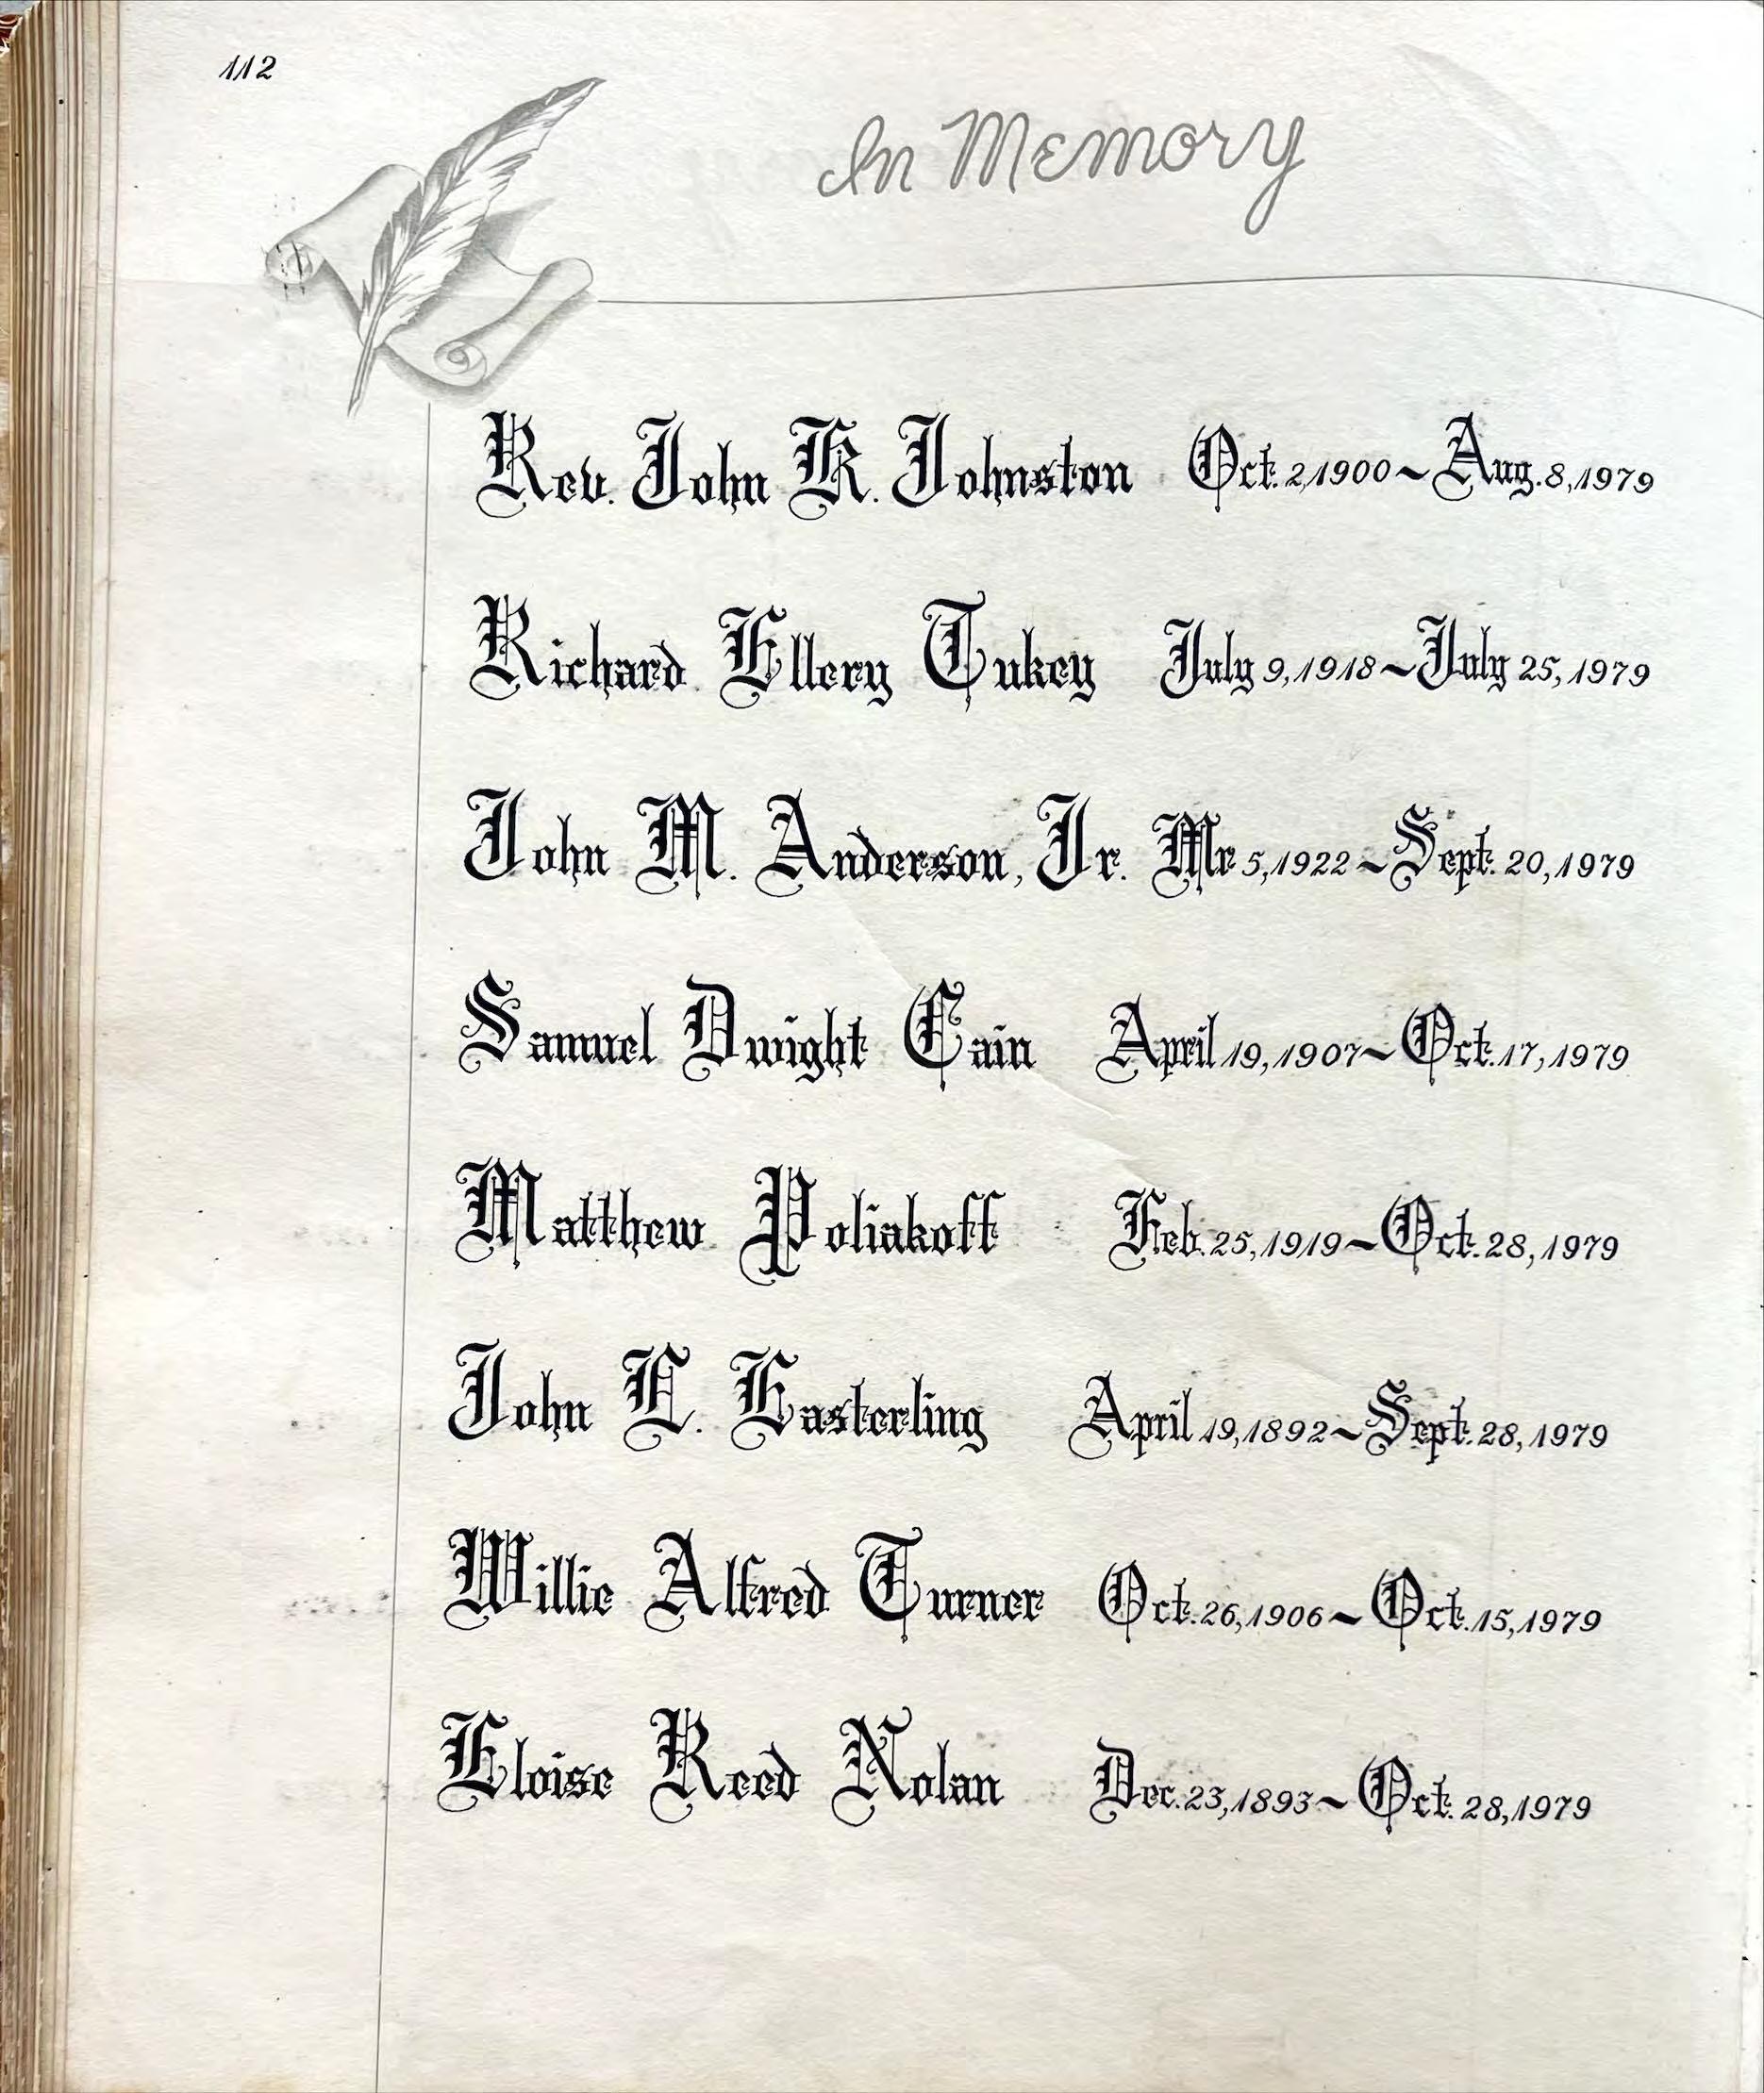 112
In Memory
Rev. John K. Johnston Oct. 2, 1900 ~ Aug. 8, 1979
Richard Ellery Tukey July 9, 1918 ~ July 25, 1979
John M. Anderson, Jr. Mr 5, 1922 ~ Sept. 20, 1979
Samuel Dwight Cain April 19, 1907 ~ Oct. 17, 1979
Matthew Poliakoff Feb. 25, 1919 ~ Oct. 28, 1979
John E. Easterling April 19, 1892 ~ Sept. 28, 1979
Willie Alfred Turner Oct. 26, 1906 ~ Oct. 15, 1979
Eloise Reed Nolan Dec. 23, 1893 ~ Oct. 28, 1979